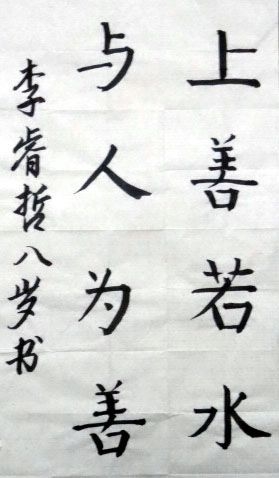 上善若水
与人为善
李睿哲八岁书